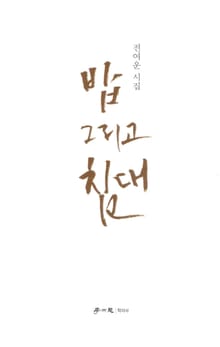 전여운 시집
밤
그리고
침대
학이사